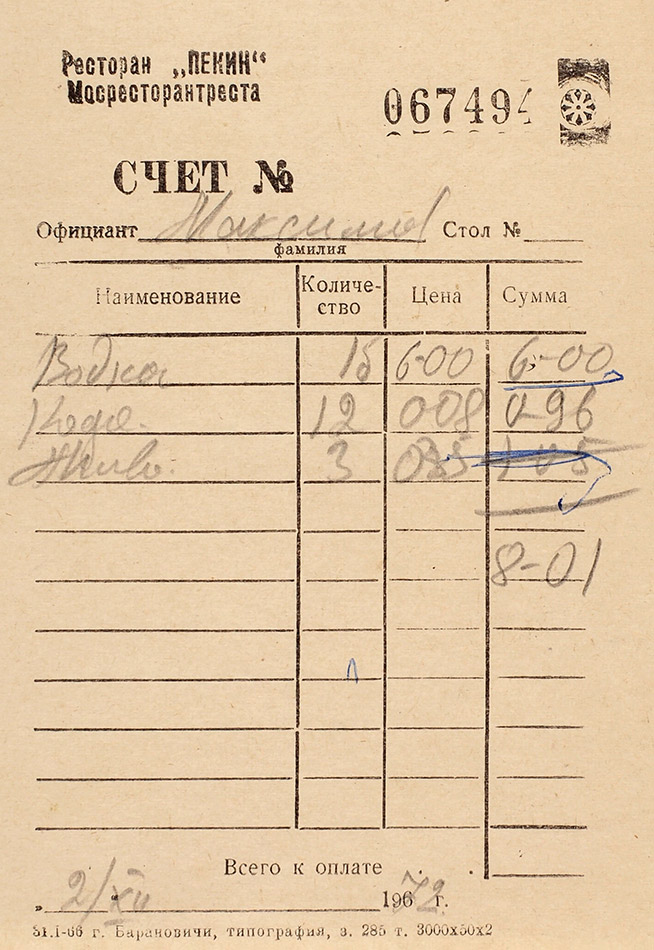 Ресторан „ПЕКИН“
Мосресторантреста
067494
СЧЕТ №
Официант Максимов Стол №
фамилия
Наименование Количе-ство Цена Сумма
Водка 6-00 6-00
Кофе. 12 0-08 0-96
Пиво. 3 0-35 1-05
8-01
Всего к оплате
„ 2/XII 1972 г.
31.I-66 г. Барановичи, типография, з. 285 т. 3000х50х2